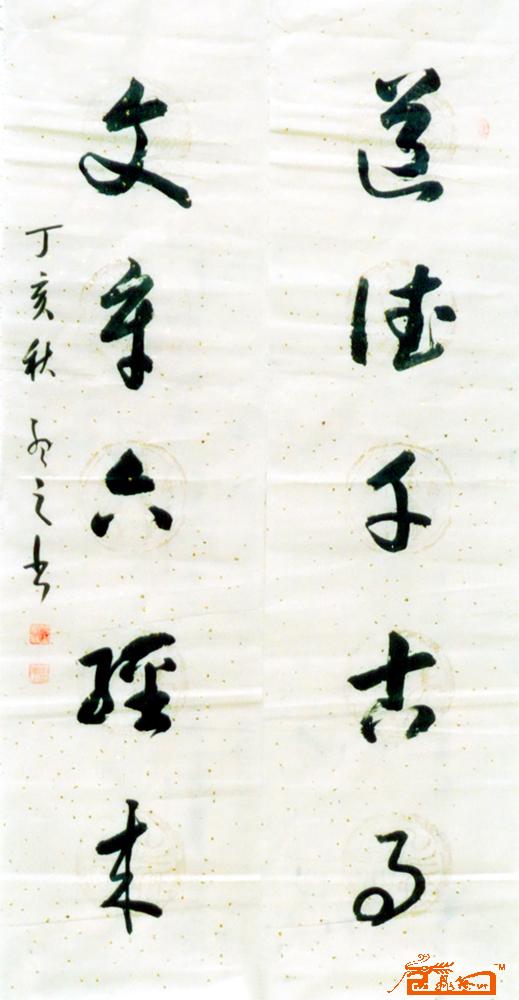 道德千古事
文章六經来
丁亥秋 之书